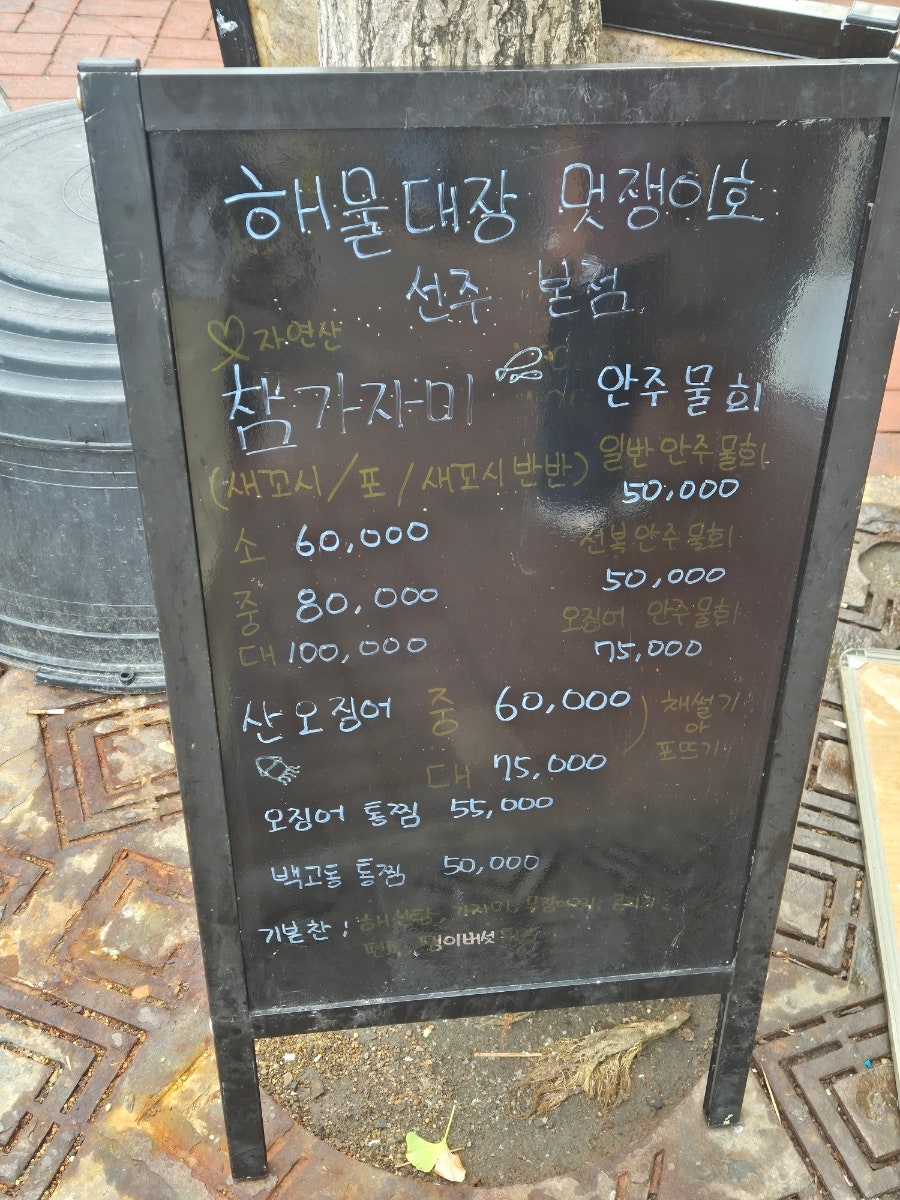 해물대장 멋쟁이호
선주 본점
자연산
참가자미
(새꼬시/포/새꼬시반반)
소 60,000
중 80,000
대 100,000
안주물회
일반 안주물회
50,000
전복안주물회
50,000
오징어 안주물회
75,000
산오징어 중 60,000
대 75,000
채썰기
아
포뜨기
오징어 통찜 55,000
백고동 통찜 50,000
기본찬 : 해산탕, 가자미,
팽이버섯